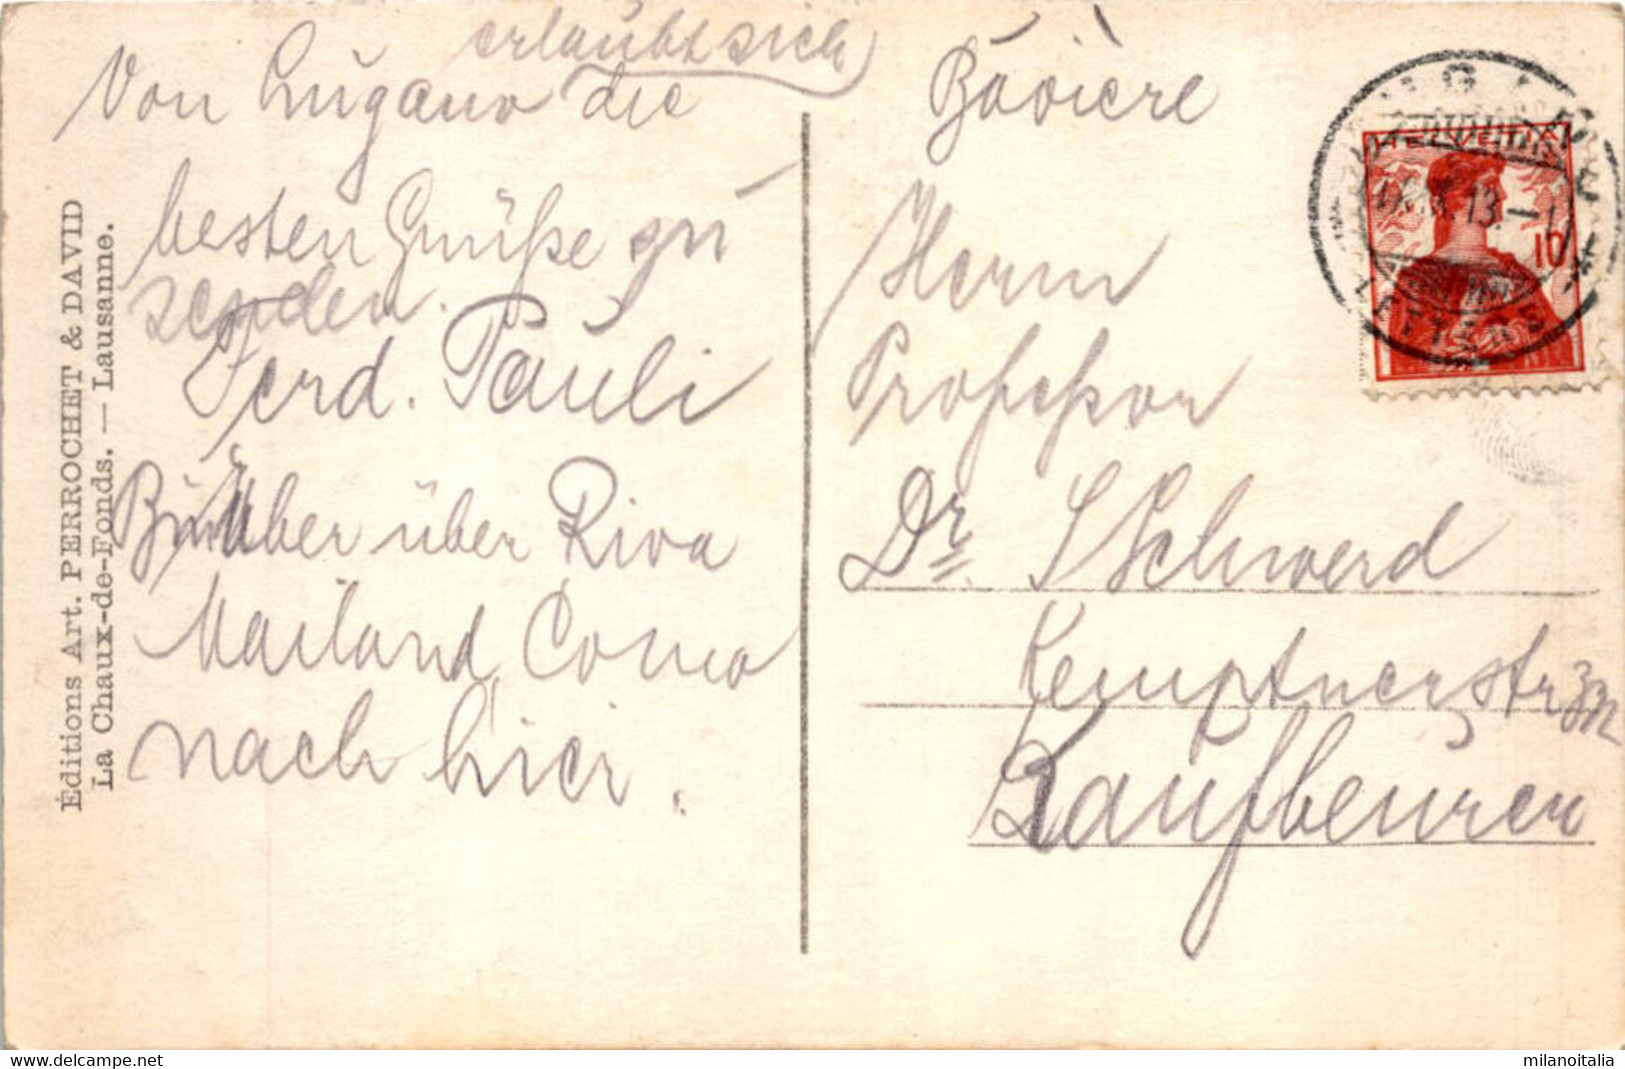 erlaubt sich
Von Lugano die
besten Grüße zu
senden.
Ferd. Pauli
über Riva
Mailand, Como
nach hier.
Editions Art. PERROCHET & DAVID
La Chaux-de-Fonds. — Lausanne.
Bavière
Herrn
Professor
Dr. Schwerd
Kemptnerstr
Kaufbeuren
HELVETIA
10
13.
LETTERE
www.delcampe.net
milanoitalia